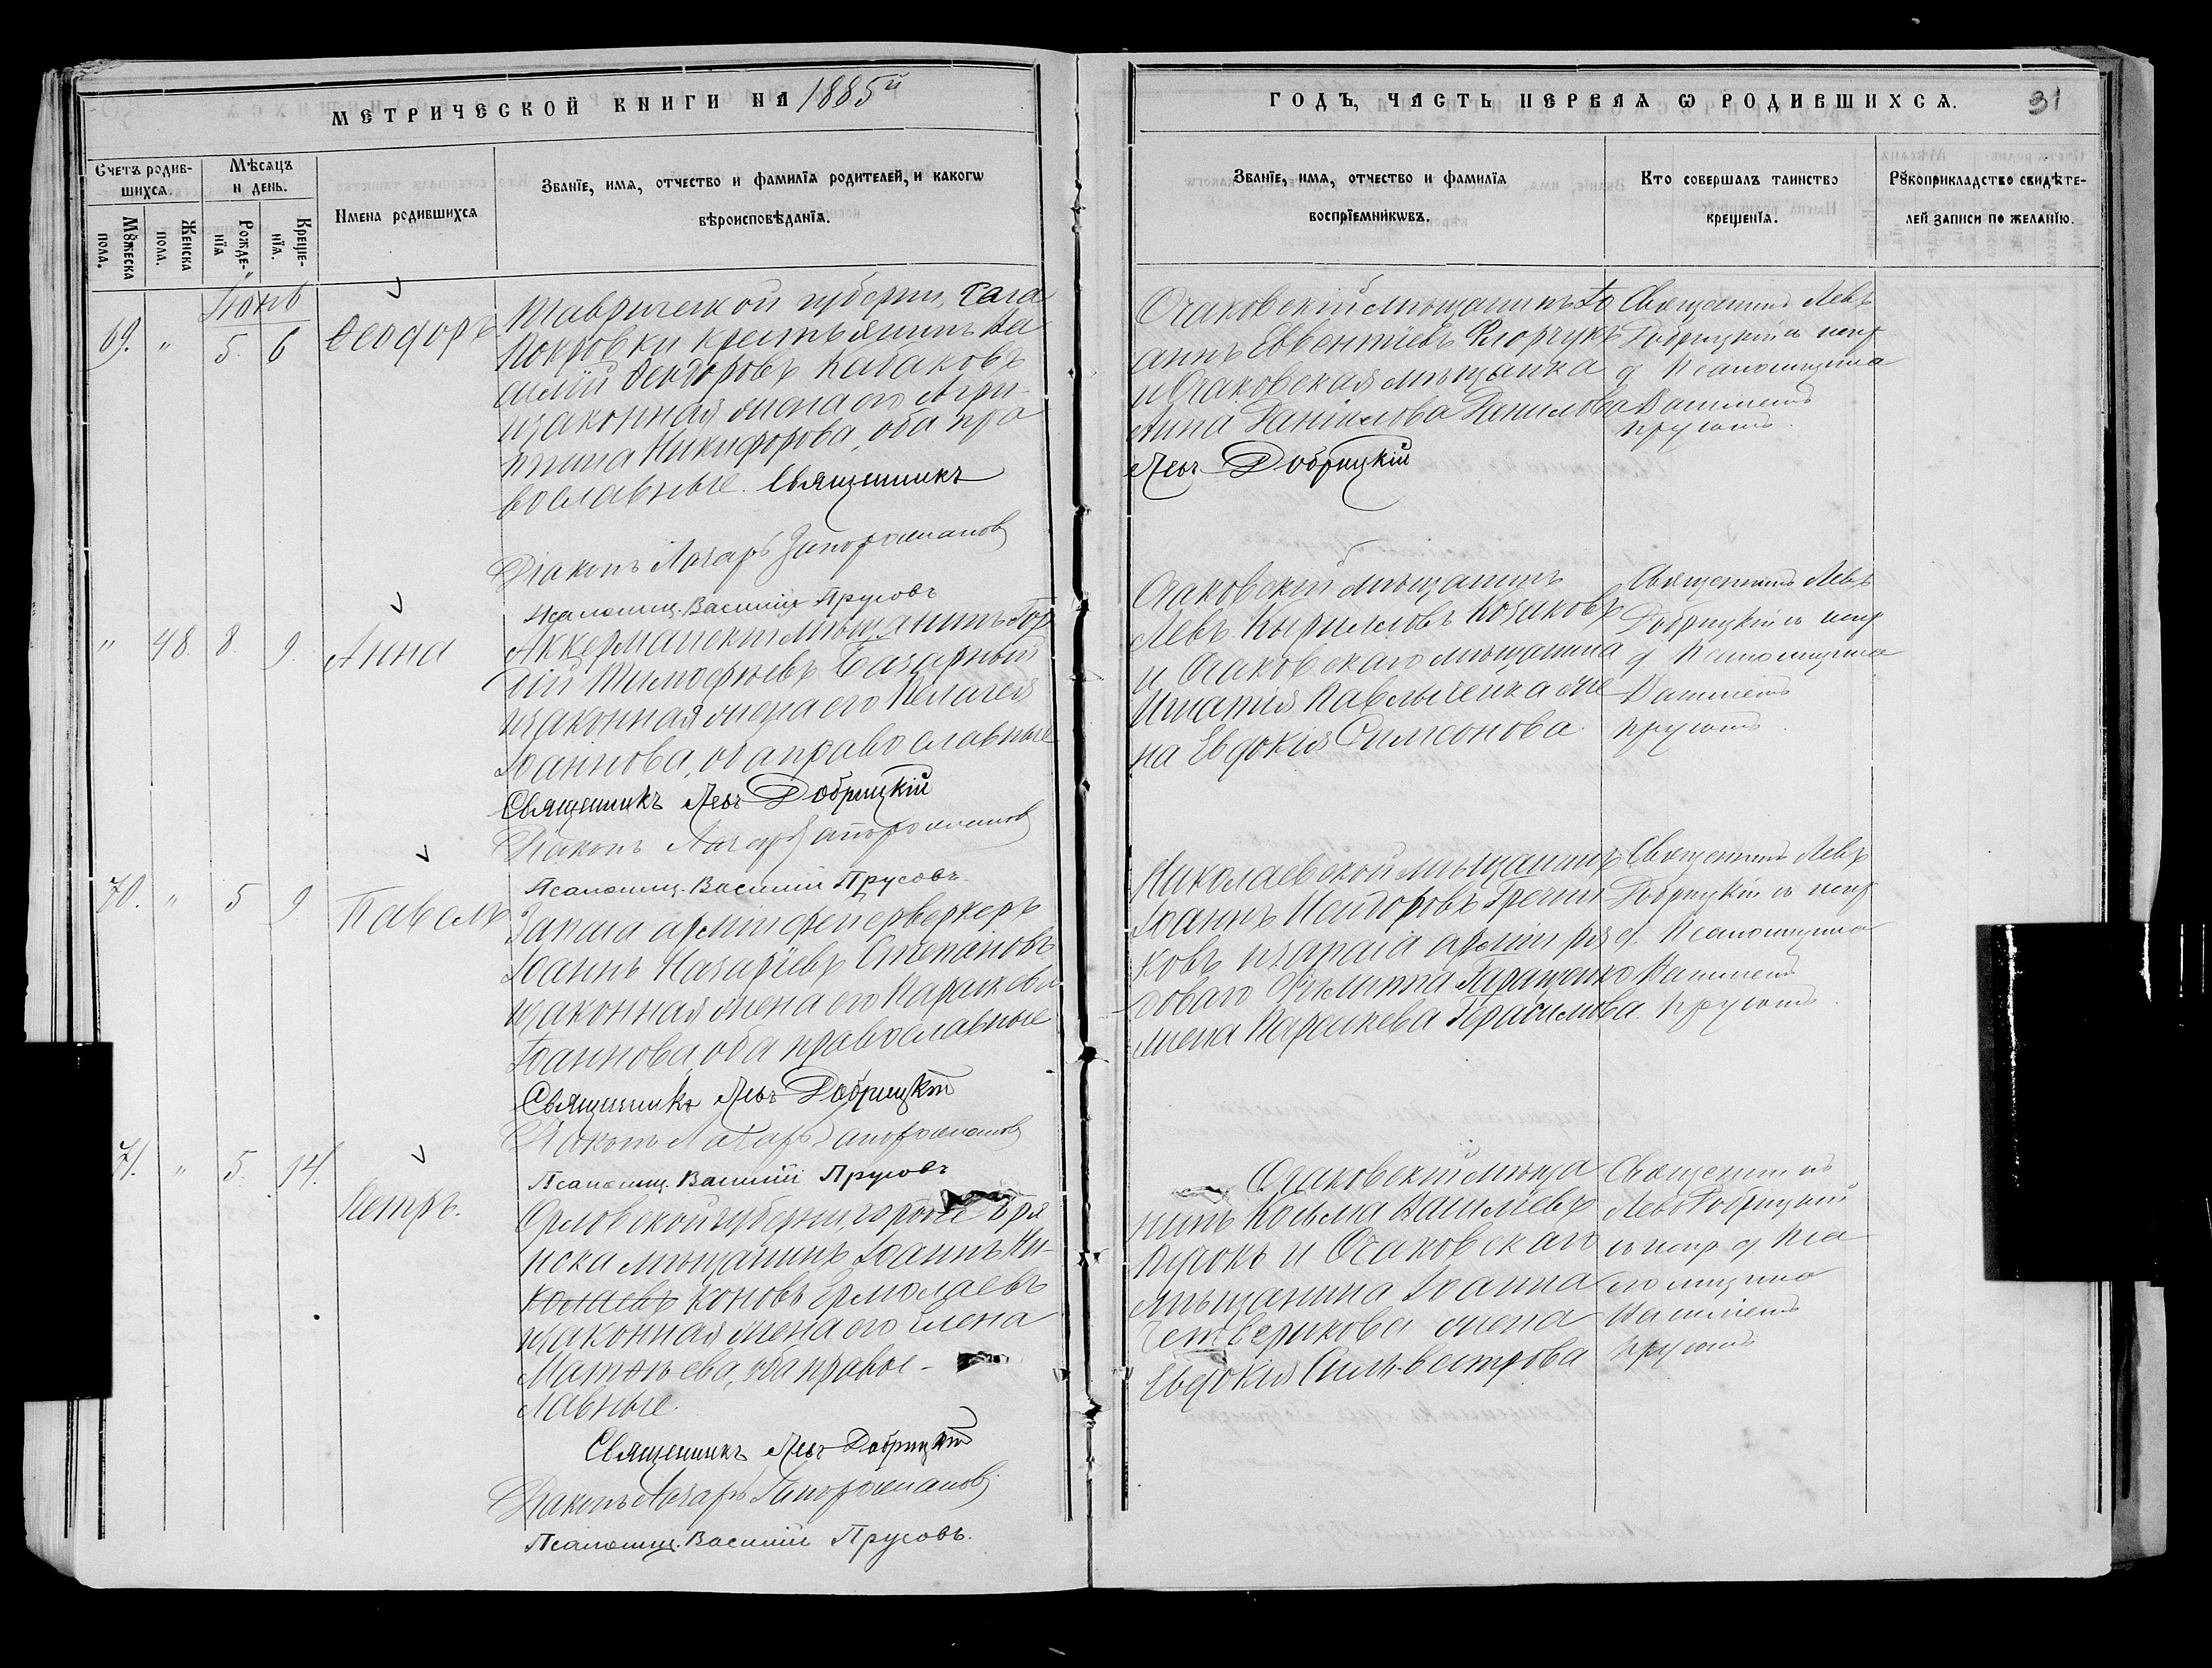 МЕТРИЧЕСКОЙ КНИГИ НА 1885й
ГОДЪ, ЧАСТЬ ПЕРВАѦ Ѡ РОДИВШИХСѦ.
31
Счетъ родив-
шихсѧ.
Мѣсѧцъ
и день.
Имена родившихсѧ
Званїе, имѧ, отчество и фамилїѧ родителей, и какогѡ
вѣроисповѣданїѧ.
Мꙋжеска
пола.
Женска
пола.
Рожде-
нїѧ
Креще-
нїѧ.
Званїе, имѧ, отчество и фамилїѧ
воспрїемникѡвъ.
Кто совершалъ таинство
крещенїѧ.
Рꙋкоприкладство свидѣте-
лей записи по желанїю.
Іюнь
69. " 5. 6 Ѳеодоръ
Таврической губерніи, села
Покровки крестьянинъ Ва
силій Ѳеодоровъ Казаковъ
и законная жена его Агри-
пина Никифорова, оба пра
вославные. Священникъ
Діаконъ Лазарь Запорожановъ
Псаломщ. Василій Прусовъ
Очаковскій мѣщанинъ Іо
аннъ Евѳентіевъ Флорчукъ
и Очаковская мѣщанка
Анна Даніилова Данилова
Левъ Добрицкій
Священникъ Левъ
Добрицкій съ исп
д Псаломщика
Василіемъ
Прусовымъ.
" 48. 8. 9. Анна
Аккерманскій мѣщанинъ Гор
дій Тимофѣевъ Базарный
и законная жена его Пелагея
Іоаннова, оба православные
Священникъ Левъ Добрицкій
Діаконъ Лазарь Запорожановъ
Псаломщ. Василій Прусовъ.
Очаковскій мѣщанинъ
Левъ Кырилловъ Козаковъ
и Очаковскаго мѣщанина
Игнатія Павлыченка же
на Евдокія Симеонова.
Священникъ Левъ
Добрицкій съ исп
д Псаломщика
Василіемъ
Прусовымъ.
70. " 5 9. Павелъ
Запаса арміи фейерверкеръ
Іоаннъ Назаріевъ Степановъ
и законная жена его Параскева
Іоаннова, оба православные
Священникъ Левъ Добрицкій
Діаконъ Лазарь Запорожановъ
Псаломщ. Василій Прусовъ
Николаевской мѣщанинъ
Іоаннъ Исидоровъ Гречни
ковъ и запаса арміи ря
доваго Геращенко
жена Параскева Герасимова.
Священникъ Левъ
Добрицкій съ исп
д. Псаломщика
Василіемъ
Прусовымъ.
71. " 5. 14. Петръ.
Орловской губерніи, города Бря
нска мѣщанинъ Іоаннъ Ни-
колаевъ коновъ Ермолаевъ
и законная жена его Елена
Матѳѣева, оба правос-
лавные.
Священникъ Левъ Добрицкій
Діаконъ Лазарь Запорожановъ
Псаломщ. Василій Прусовъ.
Очаковскій мѣща
нинъ Козьма Василіевъ
и Очаковскаго
мѣщанина Іоанна
Четверикова жена
Евдокія Сильвестрова
Священникъ
Левъ Добрицкій
съ исп. д. Пса
ломщика
Василіемъ
Прусовымъ